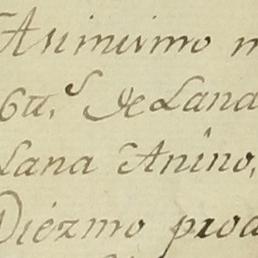 Asimismo m
6tt.s de Lana
Lana Anino,
Diézmo prod